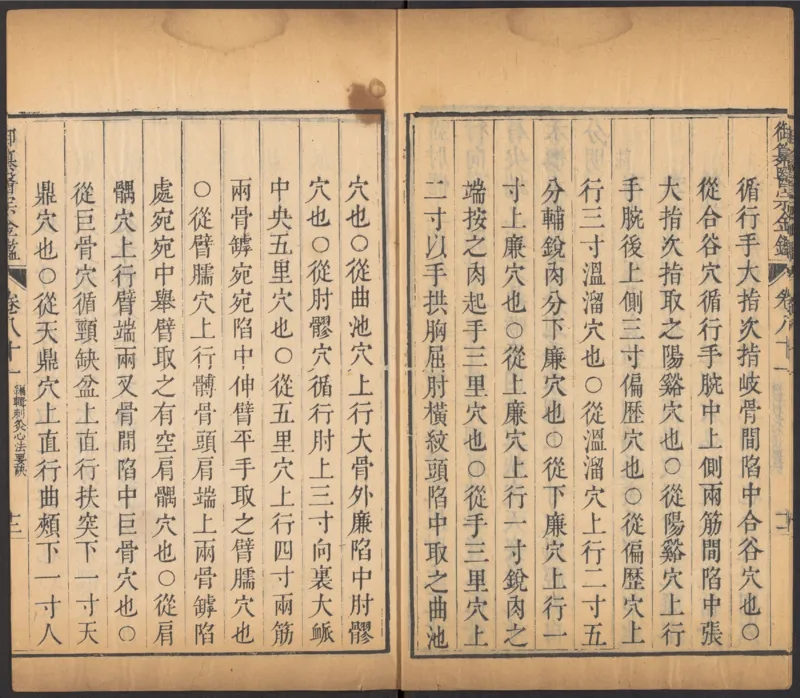 御纂醫宗金鑑 卷八十一 十二
循行手大指次指岐骨間陷中合谷穴也○
從合谷穴循行手腕中上側兩筋間陷中張
大指次指取之陽谿穴也○從陽谿穴上行
手腕後上側三寸偏歷穴也○從偏歷穴上
行三寸溫溜穴也○從溫溜穴上行二寸五
分輔銳肉分下廉穴也○從下廉穴上行一
寸上廉穴也○從上廉穴上行一寸銳肉之
端按之肉起手三里穴也○從手三里穴上
二寸以手拱胸屈肘橫紋頭陷中取之曲池
穴也○從曲池穴上行大骨外廉陷中肘髎
穴也○從肘髎穴循行肘上三寸向裏大脈
中央五里穴也○從五里穴上行四寸兩筋
兩骨罅宛宛陷中伸臂平手取之臂臑穴也
○從臂臑穴上行髆骨頭肩端上兩骨罅陷
處宛宛中舉臂取之有空肩髃穴也○從肩
髃穴上行臂端兩叉骨間陷中巨骨穴也○
從巨骨穴循頸缺盆上直行扶突下一寸天
鼎穴也○從天鼎穴上直行曲頰下一寸人
御纂醫宗金鑑 卷八十一 編輯刺灸心法要訣 十三